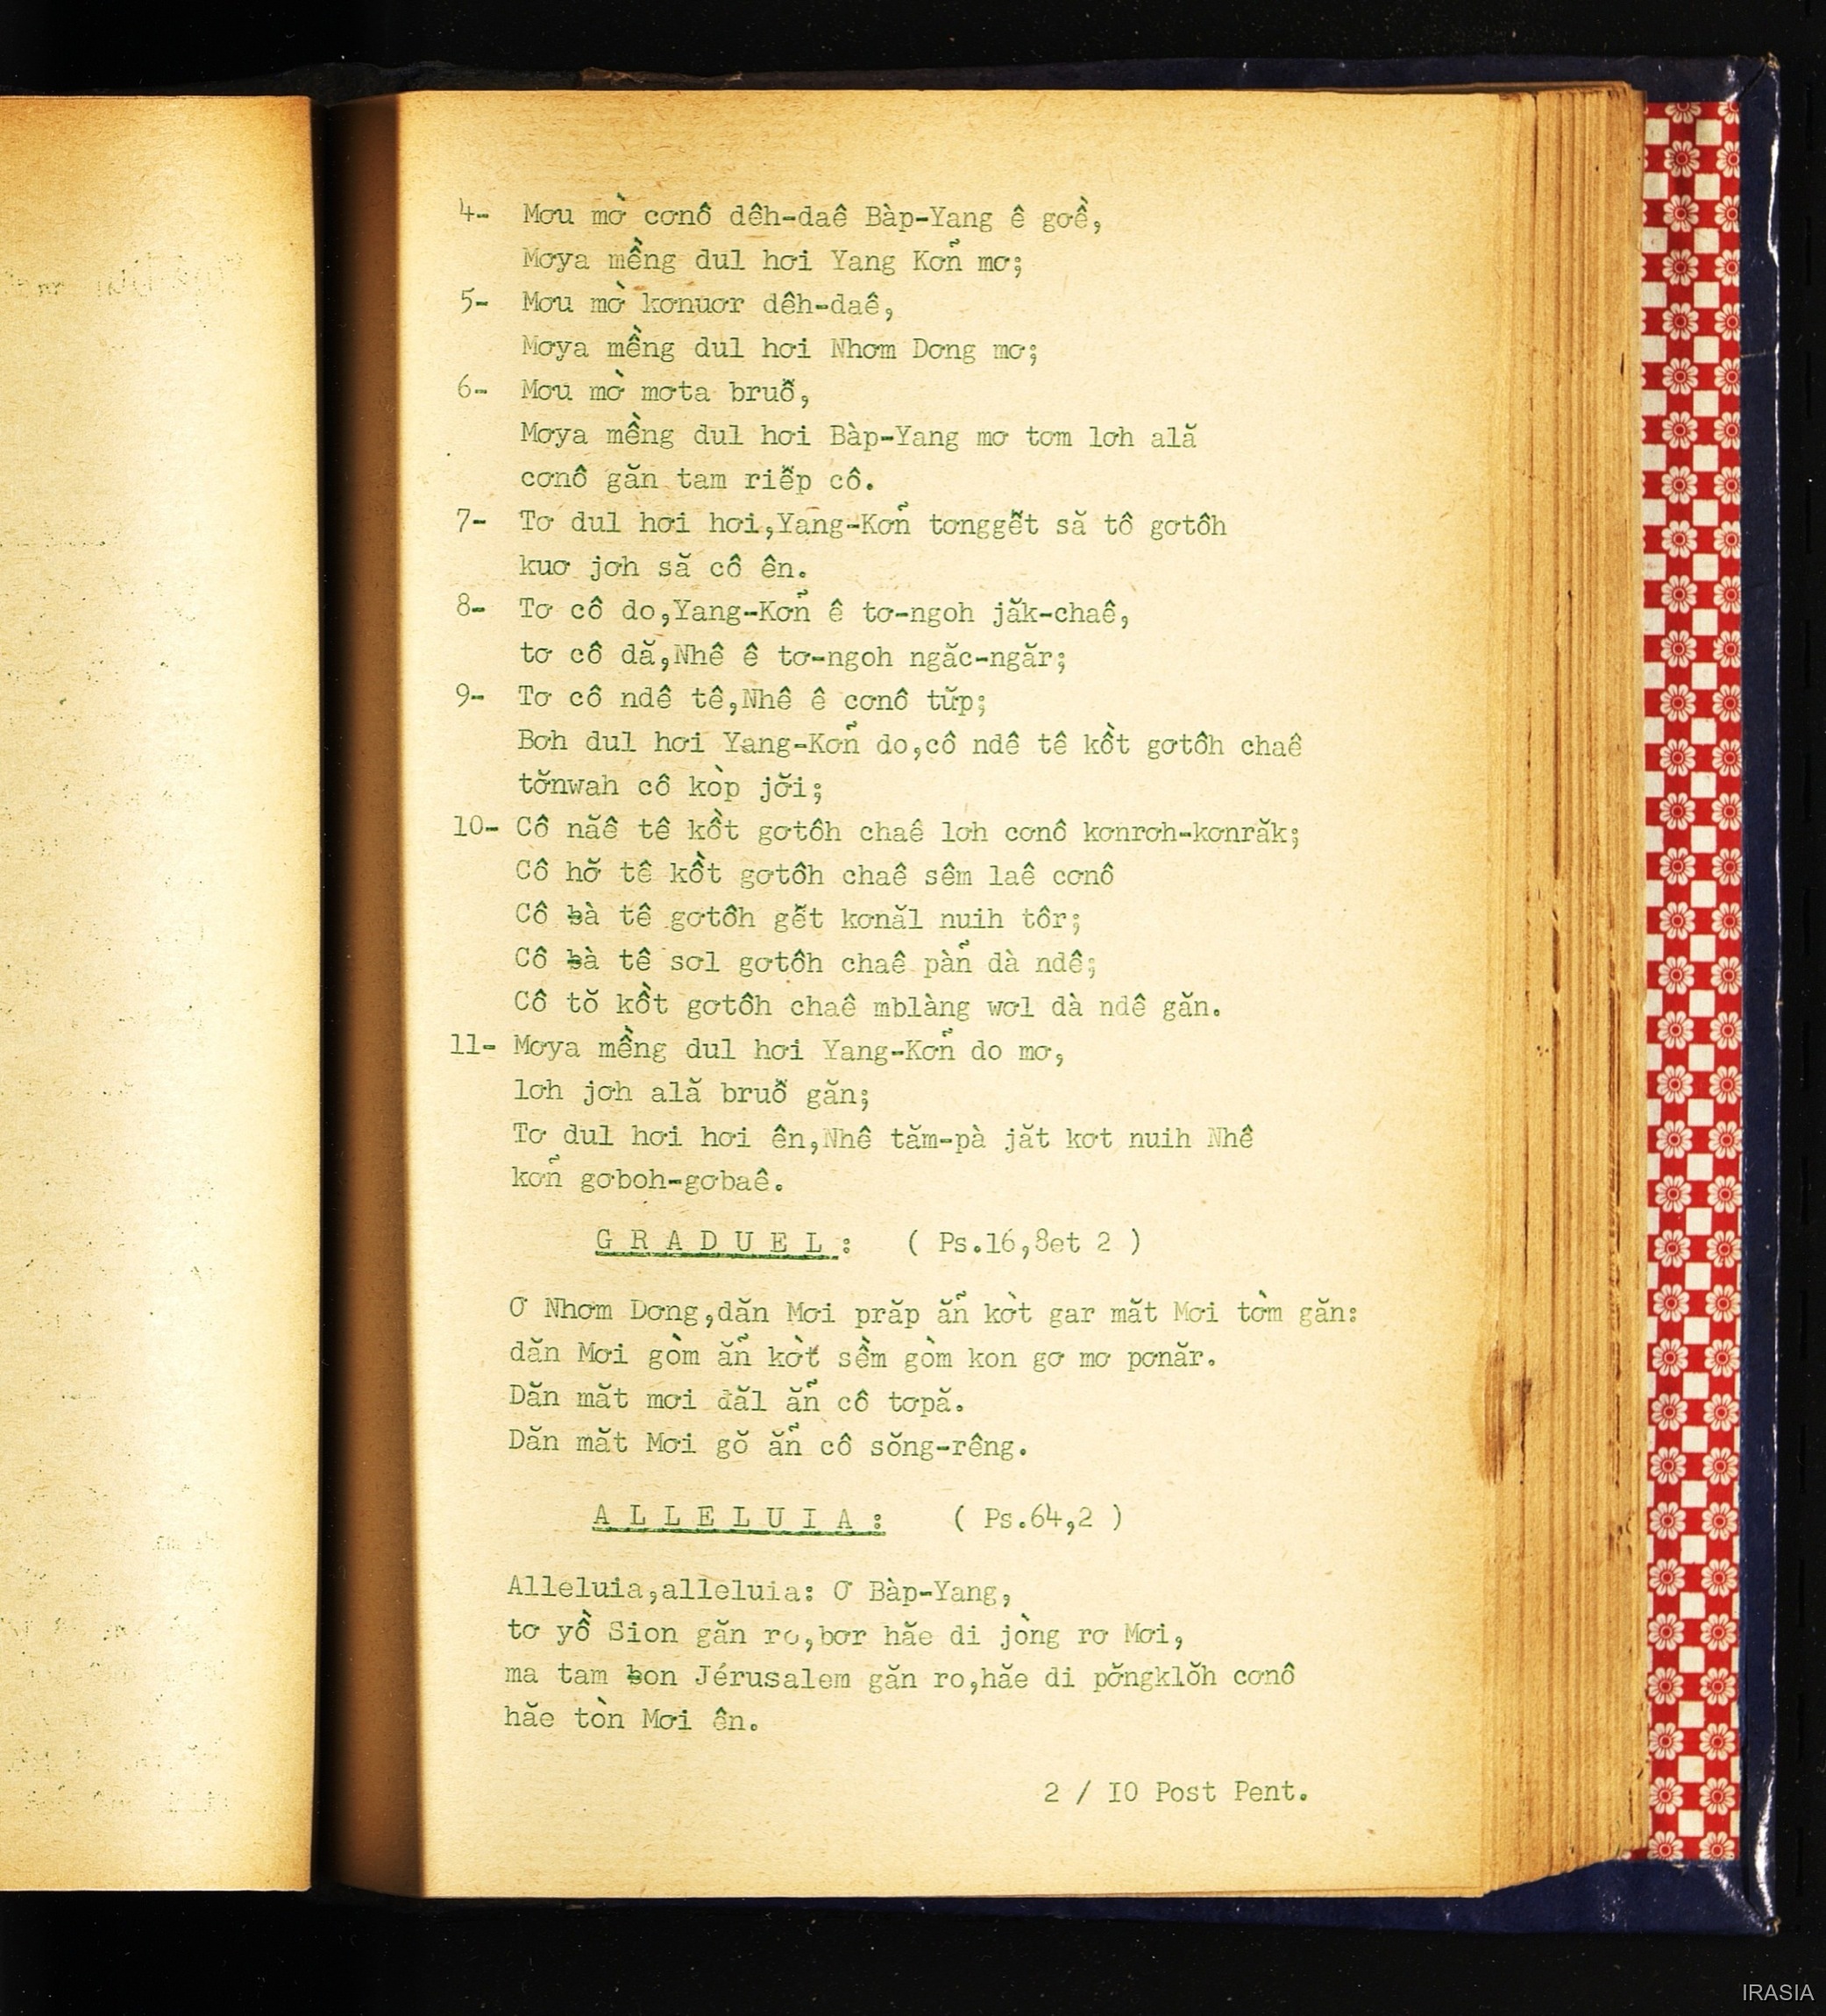 4- Mơu mờ cơnồ dêh-daê Bàp-Yang ê gơề,
Mơya mềng dul hơi Yang Kơñ mơ;
5- Mơu mờ kơnuơr dêh-daê,
Mơya mềng dul hơi Nhơm Dơng mơ;
6- Mơu mờ mơta bruỗ,
Mơya mềng dul hơi Bàp-Yang mơ tơm lơh ală
cơnồ găn tam riễp cô.
7- Tơ dul hơi hơi,Yang-Kơñ tơnggễt să tô gơtôh
kuơ jơh să cô ên.
8- Tơ cô do,Yang-Kơñ ê tơ-ngoh jăk-chaê,
tơ cô dă,Nhê ê tơ-ngoh ngăc-ngăr;
9- Tơ cô ndê tê,Nhê ê cơnô tư̆p;
Bơh dul hơi Yang-Kơñ do,cô ndê tê kồt gơtôh chaê
tơ̆nwah cô kòp jơ̆i;
10- Cô năê tê kồt gơtôh chaê lơh cơnô kơnrơh-kơnrăk;
Cô hơ̆ tê kồt gơtôh chaê sêm laê cơnô
Cô ƀà tê gơtôh gễt kơnăl nuih tôr;
Cô ƀà tê sơl gơtôh chaê pàñ dà ndê;
Cô tŏ kồt gơtôh chaê mblàng wơl dà ndê găn.
11- Mơya mềng dul hơi Yang-Kơñ do mơ,
lơh jơh ală bruỗ găn;
Tơ dul hơi hơi ên,Nhê tăm-pà jăt kơt nuih Nhê
kơñ gơboh-gơbaê.
G R A D U E L : ( Ps.16,8et 2 )
Ơ Nhơm Dơng,dăn Mơi prăp ăñ kờt gar măt Mơi tờm găn:
dăn Mơi gòm ăñ kờt sềm gòm kon gơ mơ pơnăr.
Dăn măt mơi đăl ăñ cô tơpă.
Dăn măt Mơi gŏ ăñ cô sŏng-rêng.
A L L E L U I A : ( Ps.64,2 )
Alleluia,alleluia: Ơ Bàp-Yang,
tơ yồ Sion găn ro,bơr hăe di jòng rơ Mơi,
ma tam ƀon Jérusalem găn ro,hăe di pơ̆ngklŏh cơnô
hăe tòn Mơi ên.
2 / I0 Post Pent.
IRASIA